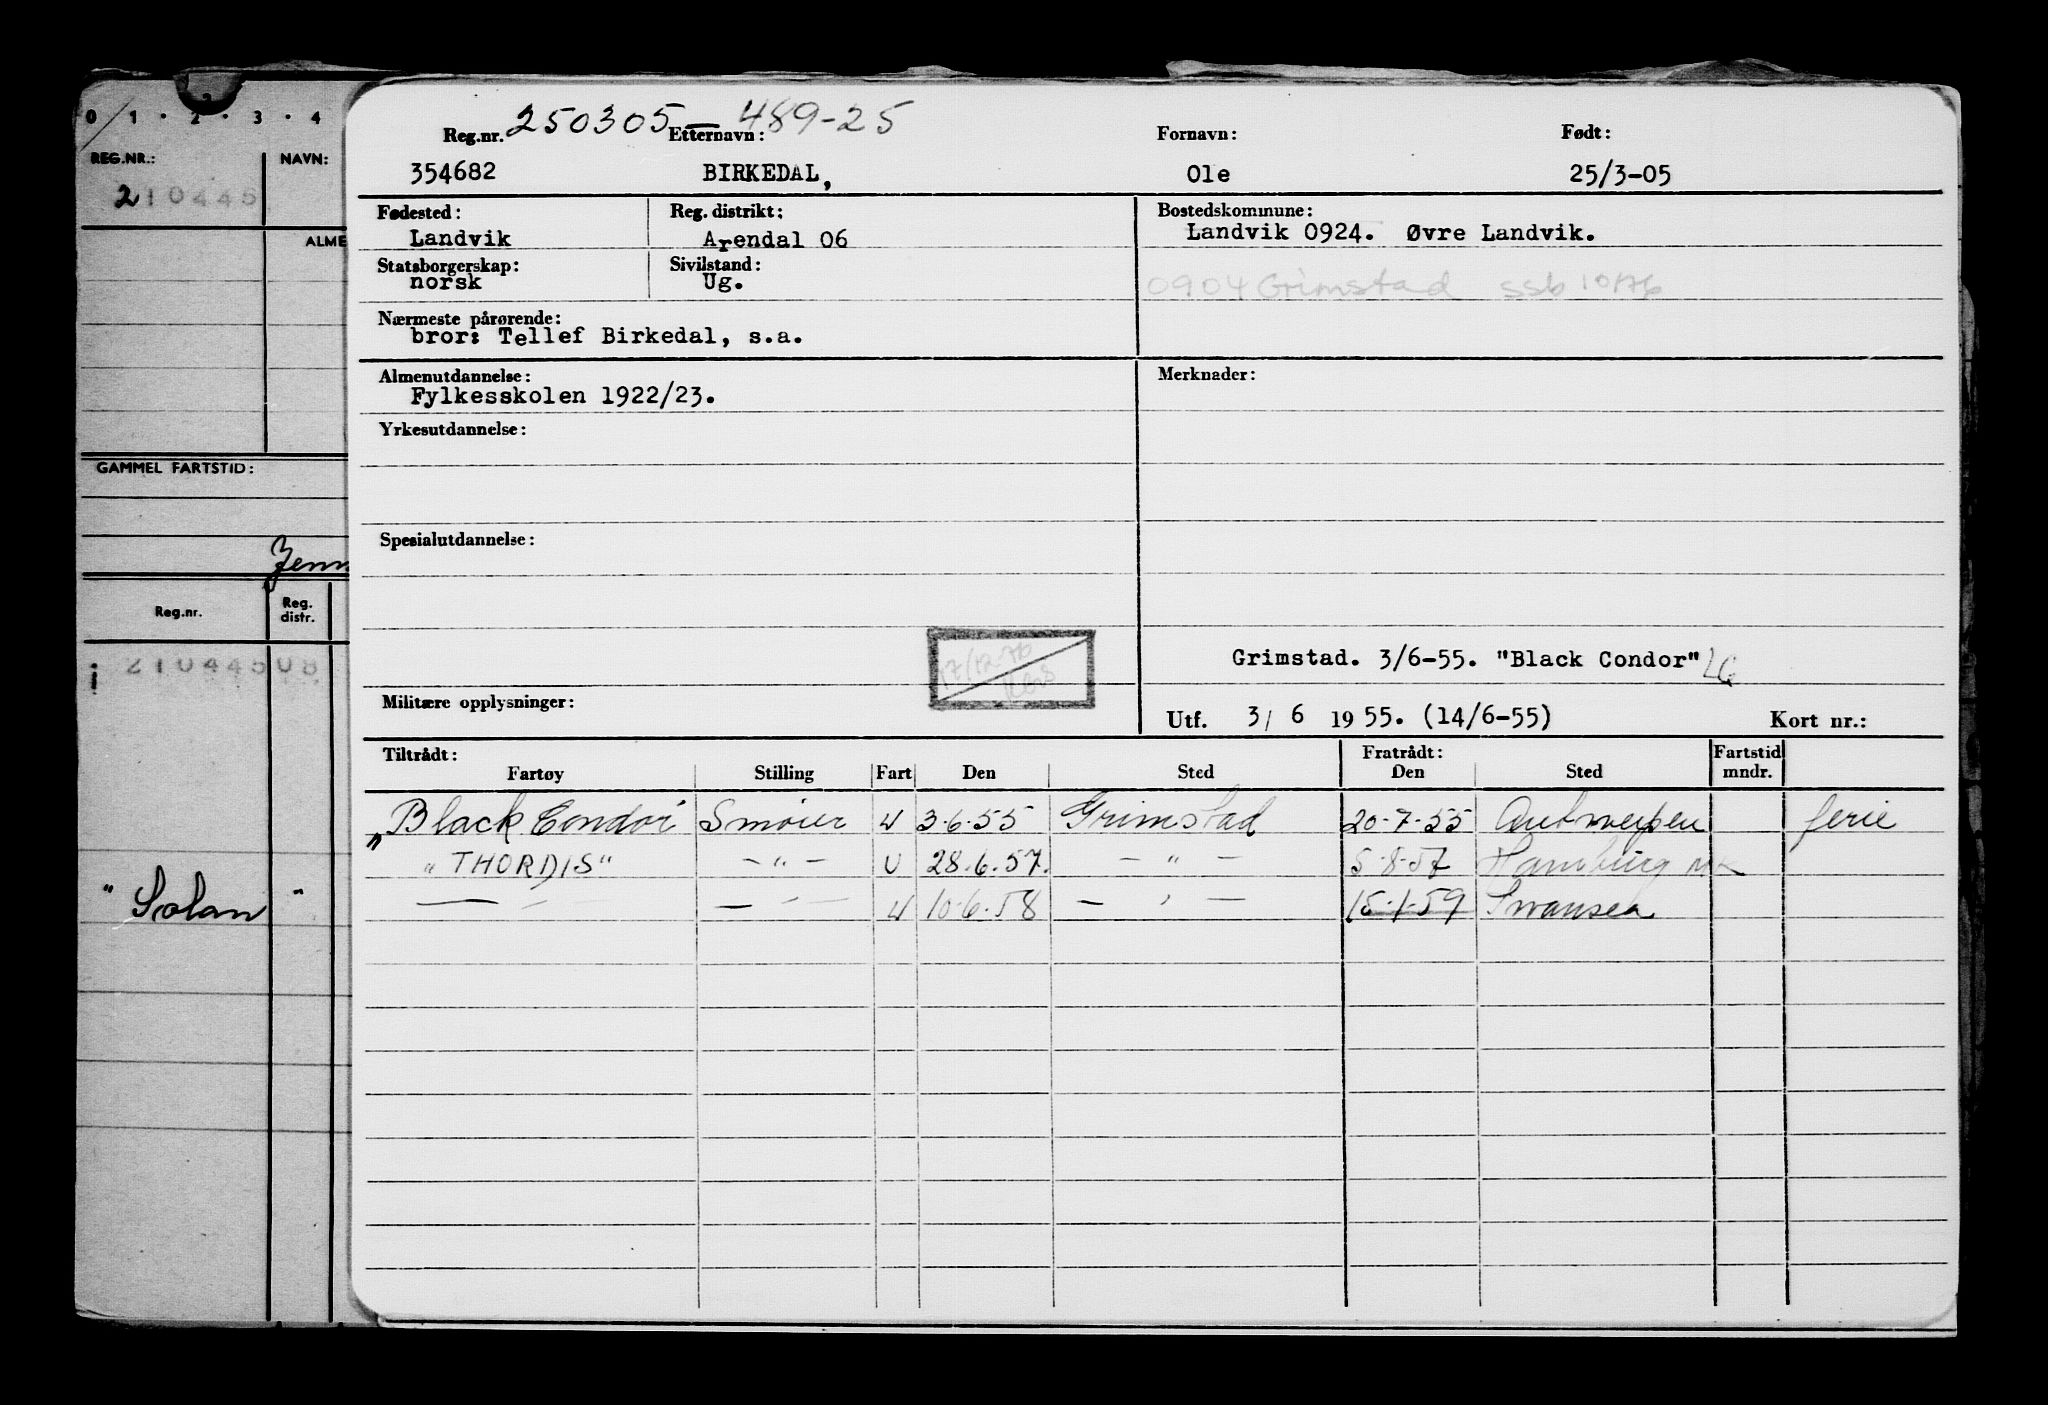 0 / 1 · 2 · 3 · 4
REG.NR.: NAVN:
210445
ALME
GAMMEL FARTSTID:
Jenn
Reg.nr. Reg. distr.
i 21044508
" Solan "
250305 — 489-25
Reg.nr. Etternavn: Fornavn: Født:
354682 BIRKEDAL, Ole 25/3-05
Fødested: Reg. distrikt: Bostedskommune:
Landvik Arendal 06 Landvik 0924. Øvre Landvik.
Statsborgerskap: Sivilstand:
norsk Ug. 0904 Grimstad ssb 10/76
Nærmeste pårørende:
bror: Tellef Birkedal, s.a.
Almenutdannelse: Merknader:
Fylkesskolen 1922/23.
Yrkesutdannelse:
Spesialutdannelse:
17/12-76
Grimstad. 3/6-55. "Black Condor"
Militære opplysninger:
Utf. 3/ 6 1955. (14/6-55) Kort nr.:
Tiltrådt: Fratrådt: Fartstid
Fartøy Stilling Fart Den Sted Den Sted mndr.
"Black Condor Smører U 3.6.55 Grimstad 20-7-55 Antwerpen ferie
"THORDIS" — " — U 28.6.57. — " — 5-8-57 Hamburg
— " — — " — U 10.6.58 — " — 15-1-59 Swansea